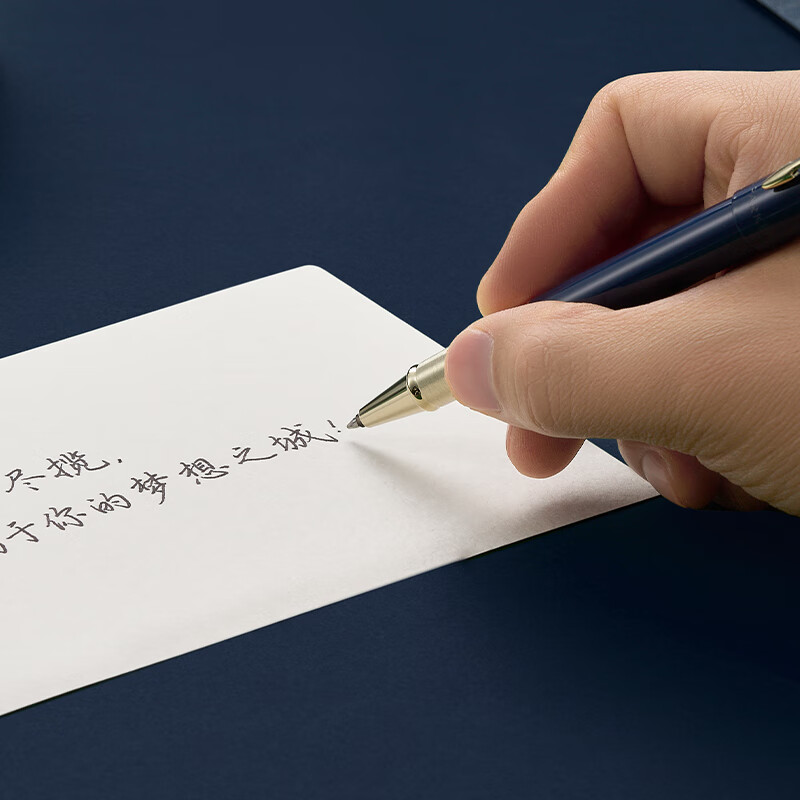 尽揽,
于你的梦想之城!